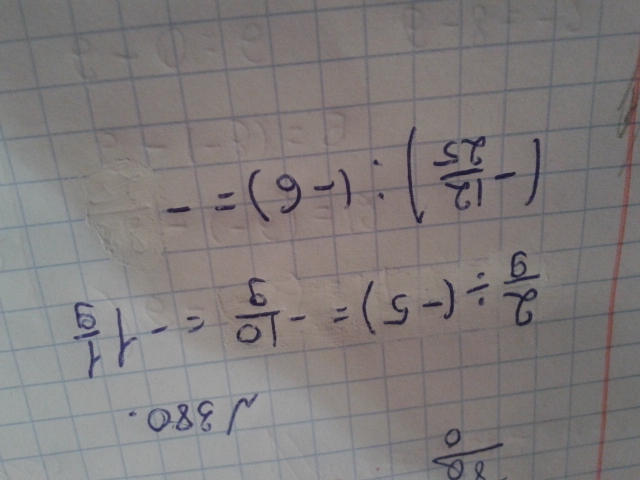 √380.
2/9 ÷ (-5) = -10/9 = -1 1/9
(-12/25) : (-6) = -